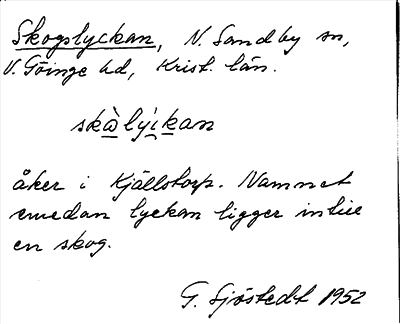 Skogslyckan, N. Sandby sn,
V. Göinge hd, Krist. län.
skὰlyckan
åker i Kjällstorp. Namnet
emedan lyckan ligger intill
en skog.
G. Sjöstedt 1952